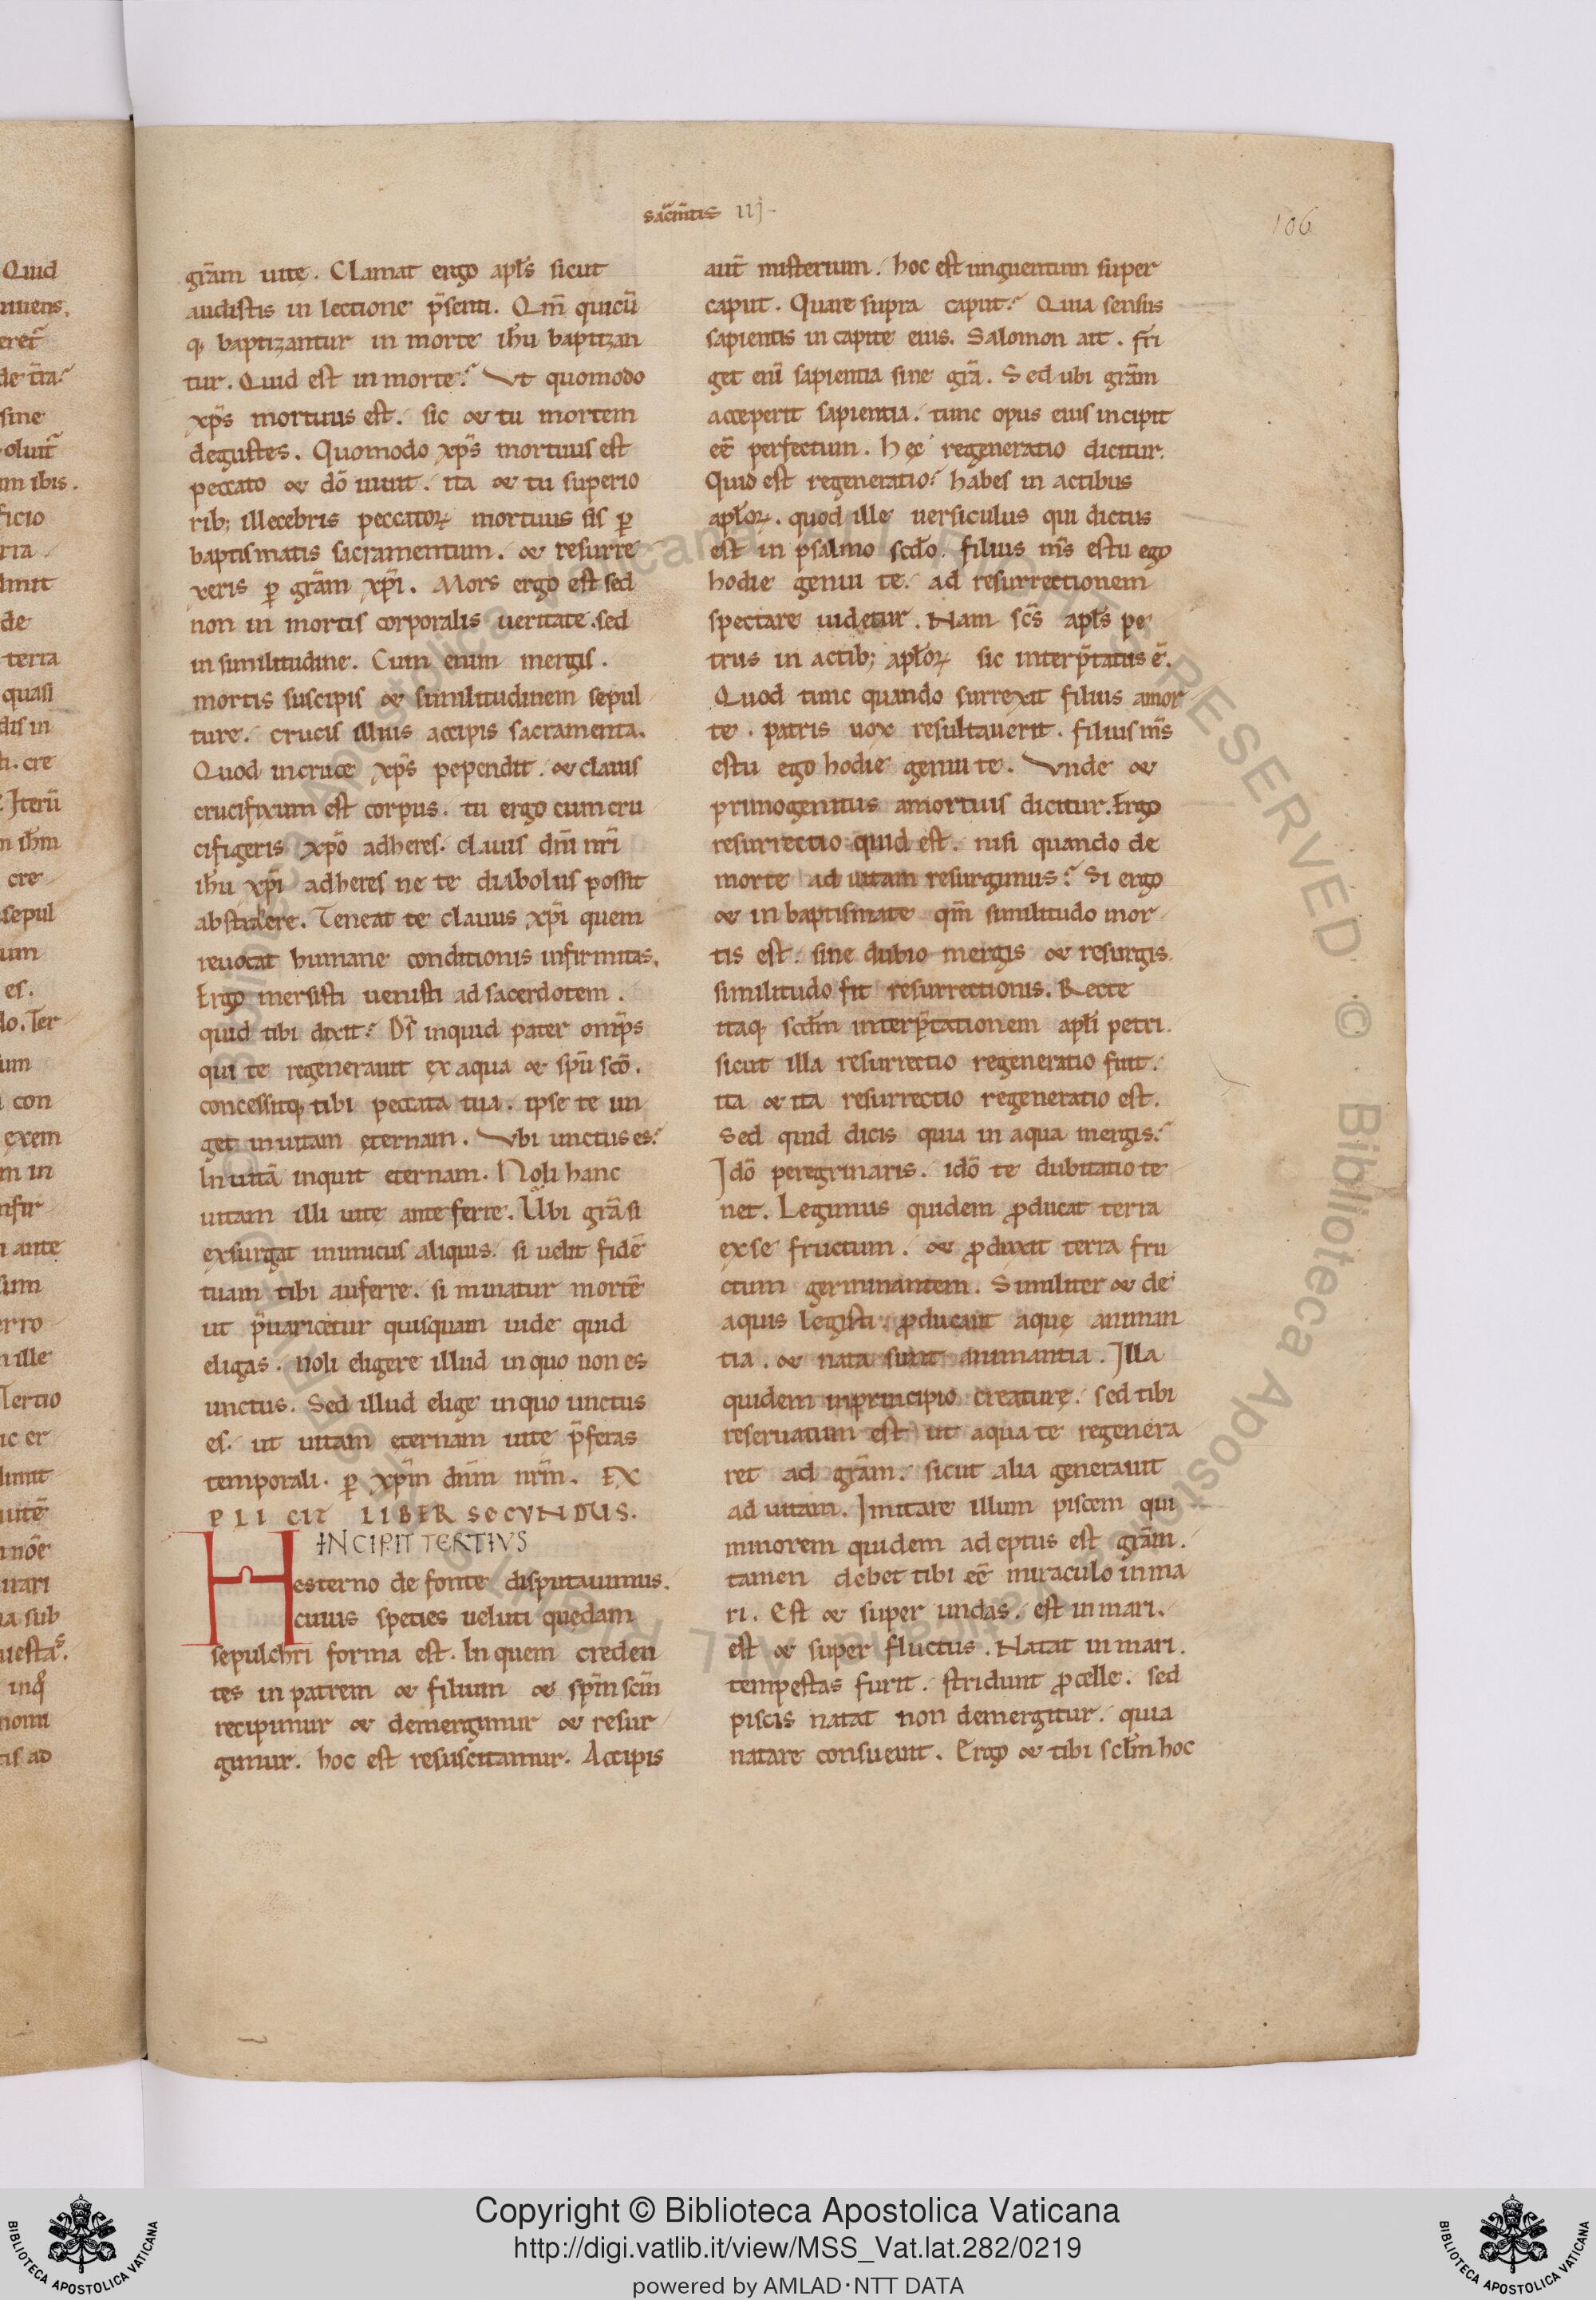 sacm̄tis iij
106
gr̄am uite. Clamat ergo apl̄s sicut
audistis in lectione p̄senti. Qm̄ quicū
q; baptizantur in morte ihū baptizan
tur. Quid est in morte? Vt quomodo
xp̄s mortuus est. sic & tu mortem
degustes. Quomodo xp̄s mortuus est
peccato & dō uiuit. ita & tu superio
rib; illecebris peccatoꝝ mortuus sis ꝑ
baptismatis sacramentum. & resurre
xeris ꝑ gr̄am xp̄i. Mors ergo est sed
non in mortis corporalis ueritate. sed
in similitudine. Cum enim mergis.
mortis suscipis & similitudinem sepul
ture. crucis illius accipis sacramenta.
Quod in cruce xp̄s pependit. & clauis
crucifixum est corpus. tu ergo cum cru
cifigeris xp̄o adheres. clauis dn̄i nr̄i
ihū xp̄i adheres ne te diabolus possit
abstrahere. Teneat te clauus xp̄i quem
reuocat humane conditionis infirmitas.
Ergo mersisti uenisti ad sacerdotem.
quid tibi dixit? Ds̄ inquid pater omp̄s
qui te regenerauit ex aqua & spū scō.
concessitq; tibi peccata tua. ipse te un
get in uitam ęternam. Vbi unctus es?
In uitā inquit eternam. Noli hanc
uitam illi uite anteferre. Ubi gr̄a si
exsurgat inimicus aliquis. si uelit fidē
tuam tibi auferre. si minatur mortē
ut p̄uaricetur quisquam uide quid
eligas. noli eligere illud in quo non es
unctus. Sed illud elige in quo unctus
es. ut uitam eternam uite p̄feras
temporali. ꝑ xp̄m dn̄m nr̄m. EX
PLICIT LIBER SECVNDUS.
INCIPIT TERTIVS
Hesterno de fonte disputauimus.
cuius species ueluti quedam
sepulchri forma est. In quem creden
tes in patrem & filium & sp̄m sc̄m
recipimur & demergimur & resur
gimur. hoc est resuscitamur. Accipis
aut̄ misterium. hoc est unguentum super
caput. Quare supra caput? Quia sensus
sapientis in capite eius. Salomon ait. fri
get enī sapientia sine gr̄a. Sed ubi gr̄am
acceperit sapientia. tunc opus eius incipit
eē perfectum. Hęc regeneratio dicitur.
Quid est regeneratio? habes in actibus
apl̄oꝝ. quod ille uersiculus qui dictus
est in psalmo scd̄o. filius ms̄ es tu ego
hodie genui te. ad resurrectionem
spectare uidetur. Nam scs̄ apl̄s pe
trus in actib; apl̄oꝝ sic interp̄tatus ē.
Quod tunc quando surrexit filius a mor
te. patris uox resultauerit. filius ms̄
es tu ego hodie genui te. Vnde &
primogenitus a mortuis dicitur. Ergo
resurrectio quid est. nisi quando de
morte ad uitam resurgimus? Si ergo
& in baptismate qm̄ similitudo mor
tis est. sine dubio mergis & resurgis.
similitudo fit resurrectionis. Recte
itaq; scd̄m interp̄tationem apl̄i petri.
sicut illa resurrectio regeneratio fuit.
ita & ita resurrectio regeneratio est.
Sed quid dicis quia in aqua mergis?
Idō peregrinaris. idō te dubitatio te
net. Legimus quidem ꝓducat terra
ex se fructum. & ꝓduxit terra fru
ctum germinantem. Similiter & de
aquis legisti. ꝓducant aquę animan
tia. & nata sunt animantia. Illa
quidem in principio creaturę. sed tibi
reseruatum est ut aqua te regenera
ret ad gr̄am. sicut alia generauit
ad uitam. Imitare illum piscem qui
minorem quidem adeptus est gr̄am.
tamen debet tibi eē miraculo in ma
ri. Est & super undas. est in mari.
est & super fluctus. Natat in mari.
tempestas furit. stridunt ꝓcelle. sed
piscis natat non demergitur. quia
natare consueuit. Ergo & tibi sclm̄ hoc
Copyright © Biblioteca Apostolica Vaticana
http://digi.vatlib.it/view/MSS_Vat.lat.282/0219
powered by AMLAD·NTT DATA
BIBLIOTECA APOSTOLICA VATICANA
BIBLIOTECA APOSTOLICA VATICANA